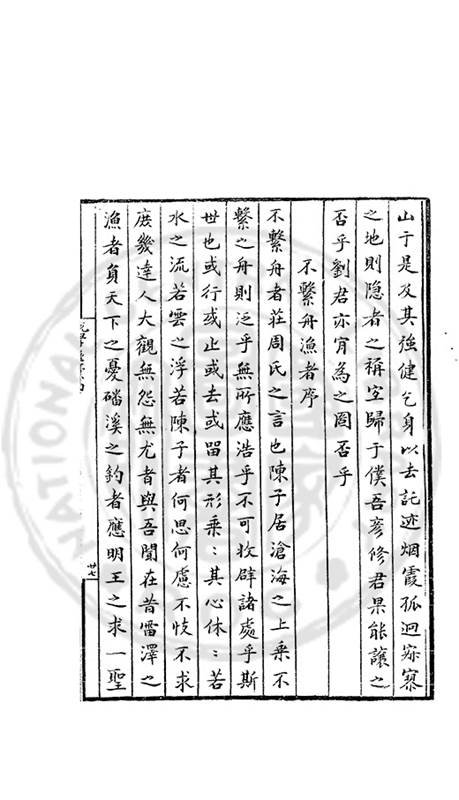 山于是及其強健乞身以去託迹烟霞孤迥寂寞
之地則隐者之稱空歸于僕吾彦修君果能讓之
否乎劉君亦肯為之圖否乎
不繫舟漁者序
不繫舟者莊周氏之言也陳子居滄海之上乘不
繫之舟則泛乎無所應浩乎不可收辟諸處乎斯
世也或行或止或去或留其形乘:其心休:若
水之流若雲之浮若陳子者何思何慮不忮不求
庻幾達人大觀無怨無尤者與吾聞在昔雷澤之
漁者負天下之憂磻溪之釣者應明王之求一聖
廿七